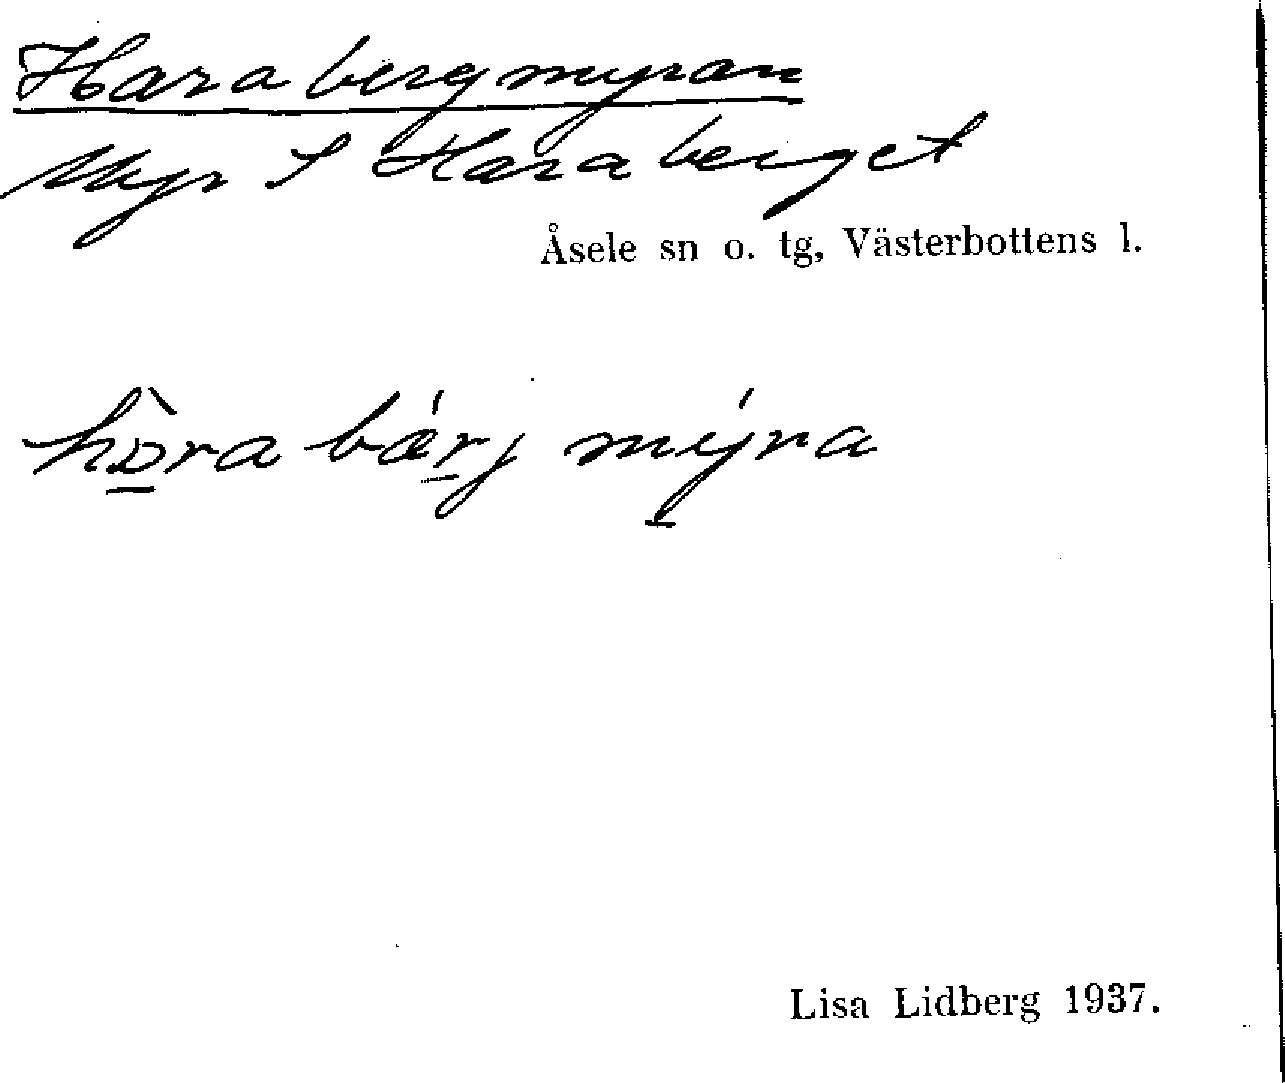 Harabergmyran
Myr S Haraberget
Åsele sn o. tg, Västerbottens l.
hɒ̀ra bǽrj mýra
Lisa Lidberg 1937.